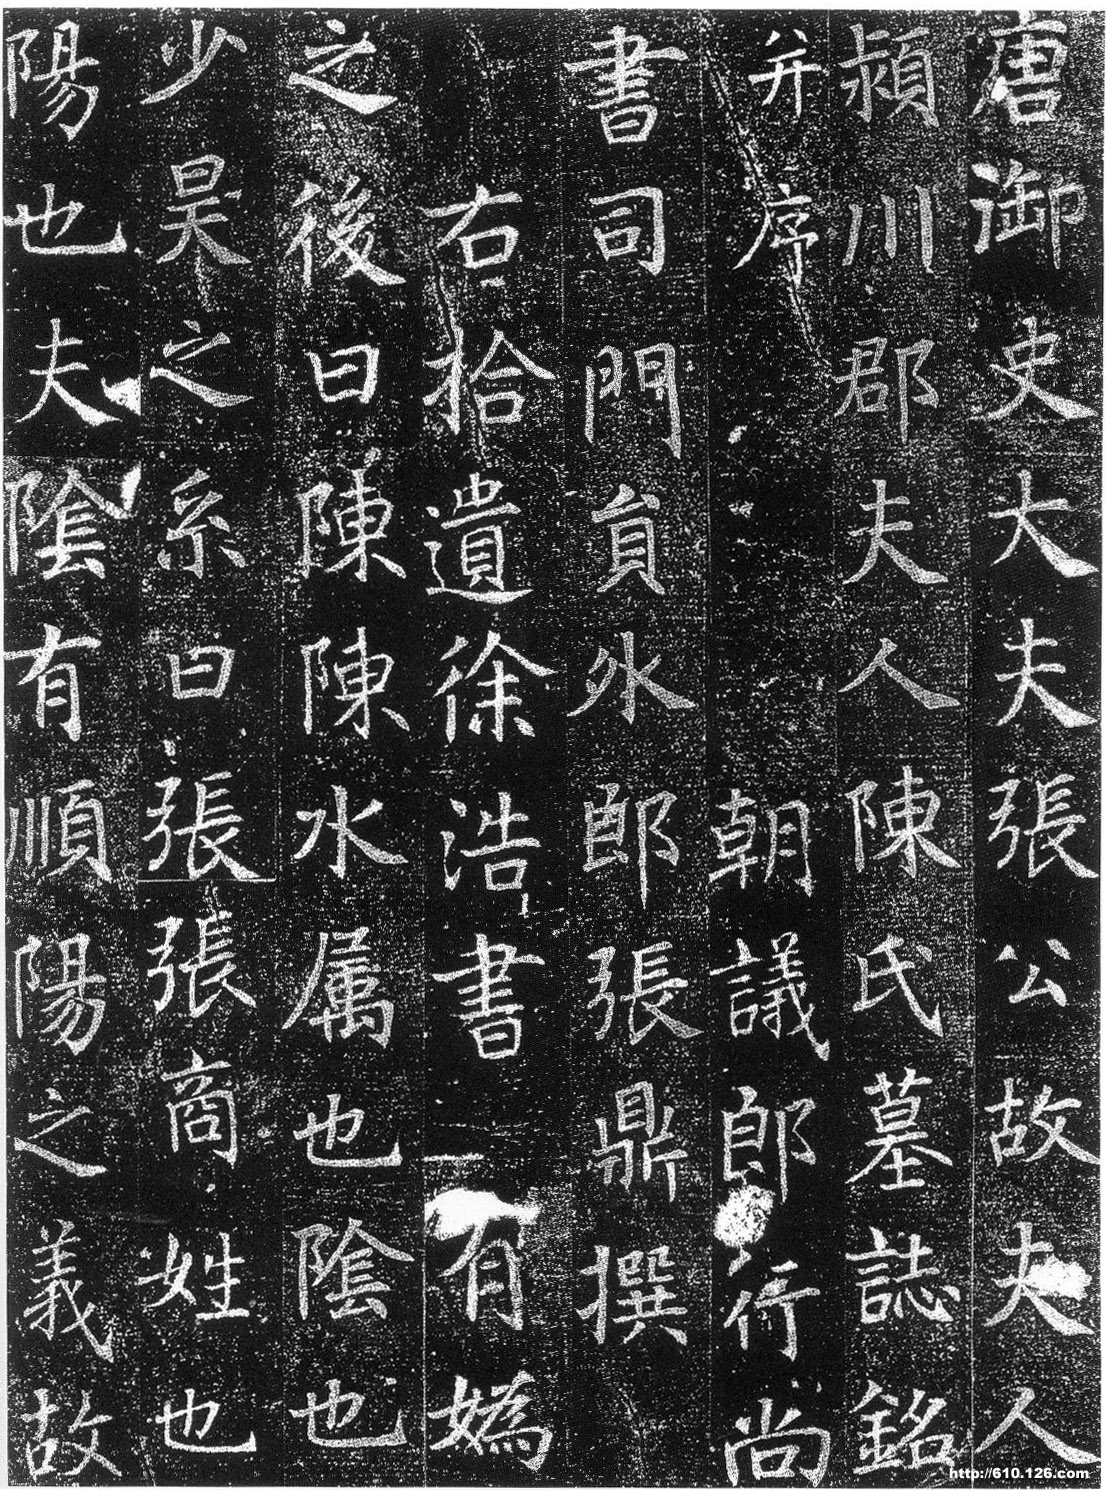 唐御史大夫張公故夫人
潁川郡夫人陳氏墓誌銘
并序 朝議郎行尚
書司門員外郎張鼎撰
右拾遺徐浩書 有媯
之後曰陳陳水属也陰也
少昊之系曰張張商姓也
陽也夫陰有順陽之義故
http://610.126.com